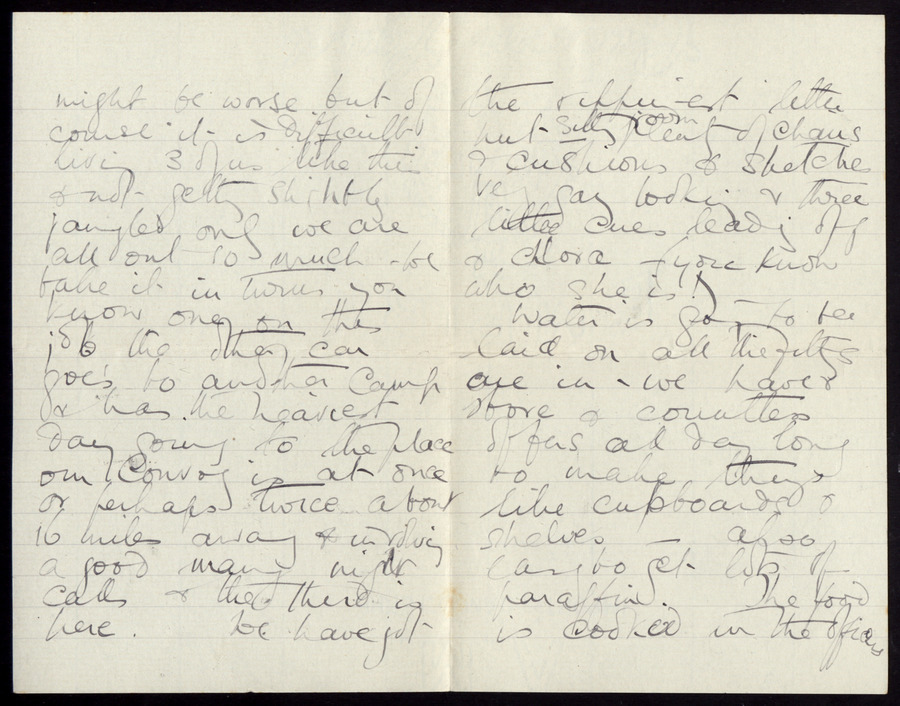 might be worse but of
course it is difficult
living 3 of us like this
& not getting slightly
jangled only we are
all out so much - we
take it in turns you
know one on this
job the other car
goes to another Camp
& has the heaviest
day going to the place
our Convoy is at once
or perhaps twice about
16 miles away & involving
a good many night
calls & the third is
here. We have got
the rippin-est little
hut sitting room pleanty of chairs
& cushions & sketches
very gay looking & three
little leading off
&
who she is!)
Water is going to be
laid on all the
are in - we have a
store &
of all day long
to make things
like cupboards &
shelves — also
easy to get lots of
paraffin. The food
is cooked in the officers